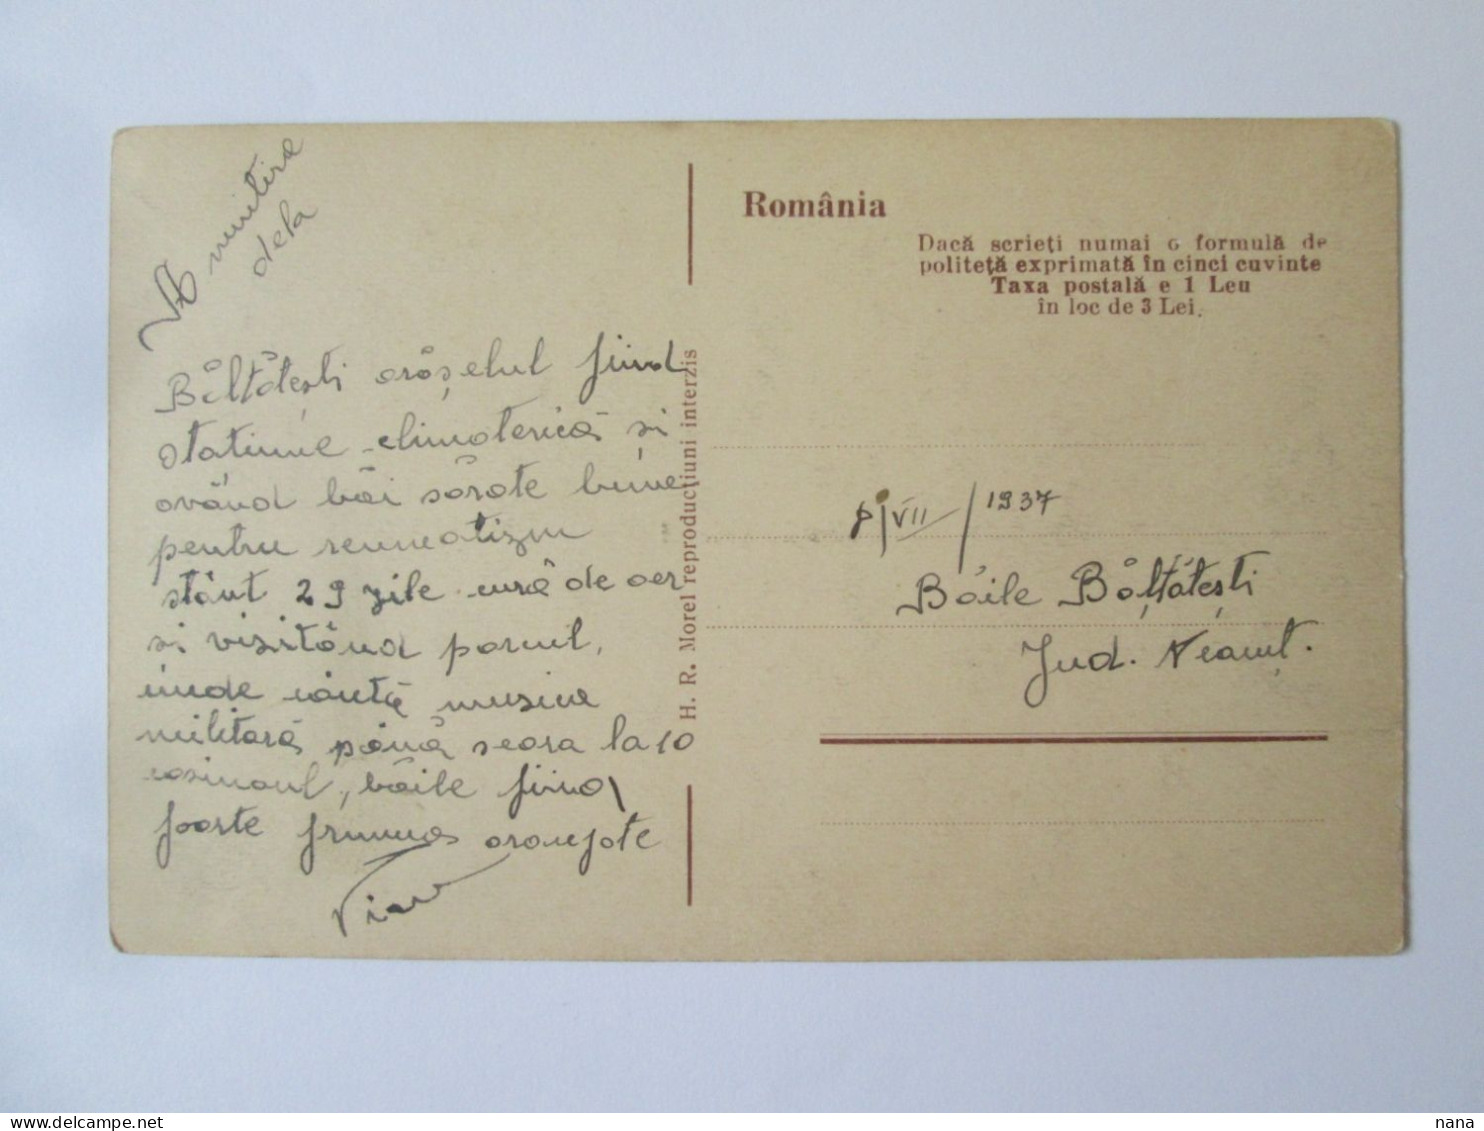 Amintire
dela
Băltătești orășelul fiind
statiune climaterică si
având băi sărate bune
pentru reumatizm
stând 29 zile cură de aer
si vizitând parcul,
unde cântă muzica
militară până seara la 10
casinoul, băile fiind
foarte frumos aranjate
H. R. Morel reproducțiuni interzis
România
Dacă scrieți numai o formulă de
politeță exprimată în cinci cuvinte
Taxa postală e 1 Leu
în loc de 3 Lei.
VII/1937
Băile Bălțătești
Jud. Neamț.
nana